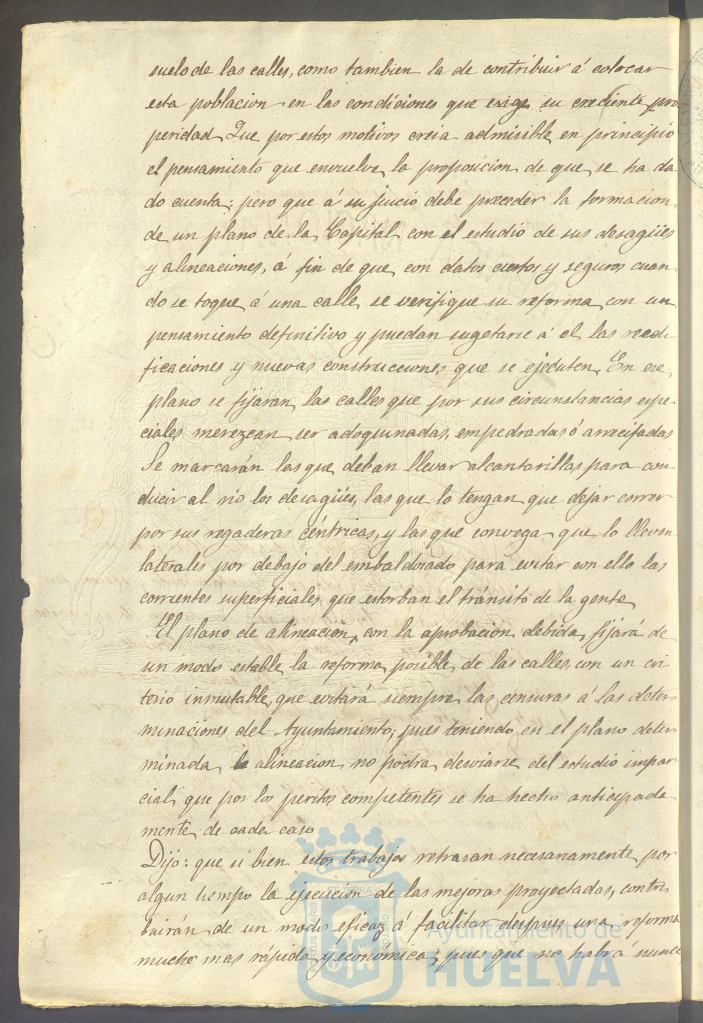 suelo de las calles, como tambien la de contribuir á colocar
esta poblacion en las condiciones que exige su creciente pros
peridad. Que por estos motivos creia admisible en principio
el pensamiento que envuelve la proposicion de que se ha da
do cuenta; pero que á su juicio debe preceder la formacion
de un plano de la Capital con el estudio de sus desagües
y alineaciones, á fin de que con datos ciertos y seguros cuan
do se toque á una calle se verifique su reforma con un
pensamiento definitivo y puedan sugetarse á el las reedi
ficaciones y nuevas construcciones que se ejecuten. En ese
plano se fijaran las calles que por sus circunstancias espe
ciales merezcan ser adoquinadas, empedradas ó arrecifadas
Se marcarán las que deban llevar alcantarillas para con
ducir al rio los desagües, las que lo tengan que dejar correr
por sus regaderas céntricas, y las que convega que lo lleven
laterales por debajo del embaldosado para evitar con ello las
corrientes superficiales que estorban el tránsito de la gente
El plano de alineacion, con la aprobacion debida, fijará de
un modo estable la reforma posible de las calles, con un cri
terio inmutable, que evitará siempre las censuras á las deter
minaciones del Ayuntamiento, pues teniendo en el plano deter
minada la alineacion no podra desviarse del estudio impar
cial que por los peritos competentes se ha hecho anticipada
mente de cada caso
Dijo: que si bien estos trabajos retrasan necesariamente por
algun tiempo la ejecucion de las mejoras proyectadas, contri
buirán de un modo eficaz á facilitar despues una reforma
mucho mas rápida y económica, pues que no habrá nunca
Ayuntamiento de
HUELVA